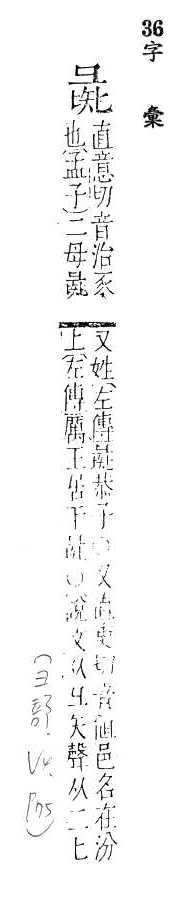 36字 彙
彘
直意切音治豕
也(孟子)二母彘
又姓(左傳)彘恭子○又直吏切音値邑名在汾
上(左傳)厲王居于彘○說文从彑矢聲从二匕
(彐部. V4, P75)